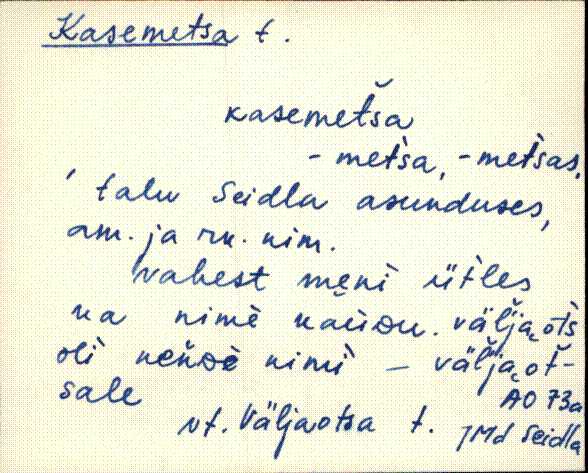 Kasemetsa t.
kasemetša
- metsa, -metsas,
' talu Seidla asunduses,
am. ja rk. nim.
vahest meni ütles
ka nimè
väljaòts
oli nimi – väljaot-
sale
AO 73a
vt. Väljaotsa t.
JMd Seidla